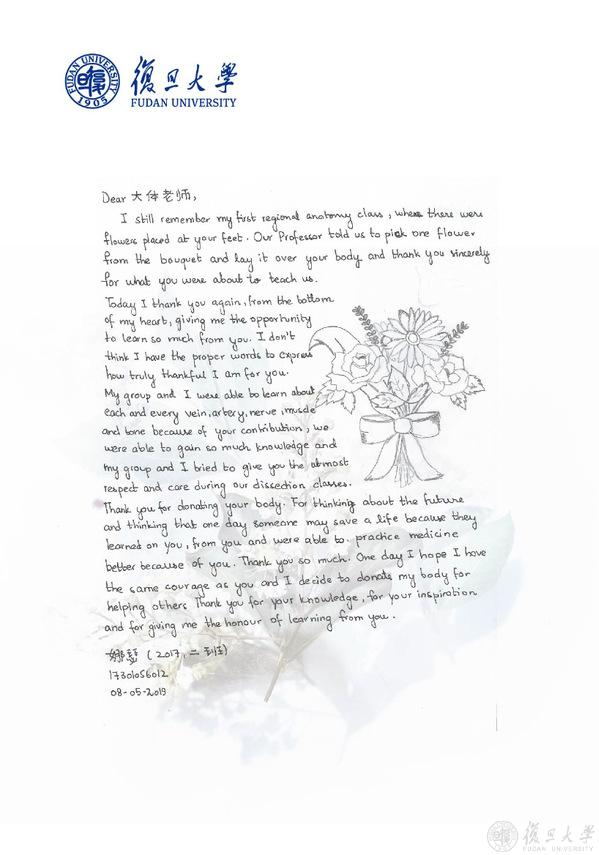 FUDAN UNIVERSITY
1905
復旦大學
FUDAN UNIVERSITY
Dear 大体老师,
I still remember my first regional anatomy class, where there were
flowers placed at your feet. Our Professor told us to pick one flower
from the bouquet and lay it over your body and thank you sincerely
for what you were about to teach us.
Today I thank you again, from the bottom
of my heart, giving me the opportunity
to learn so much from you. I don't
think I have the proper words to express
how truly thankful I am for you.
My group and I were able to learn about
each and every vein, artery, nerve, muscle
and bone because of your contribution, we
were able to gain so much knowledge and
my group and I tried to give you the utmost
respect and care during our dissection classes.
Thank you for donating your body. For thinking about the future
and thinking that one day someone may save a life because they
learned on you, from you and were able to practice medicine
better because of you. Thank you so much. One day I hope I have
the same courage as you and I decide to donate my body for
helping others Thank you for your knowledge, for your inspiration
and for giving me the honour of learning from you.
(2017, 二班)
17301056012
08-05-2019
復旦大學
FUDAN UNIVERSITY